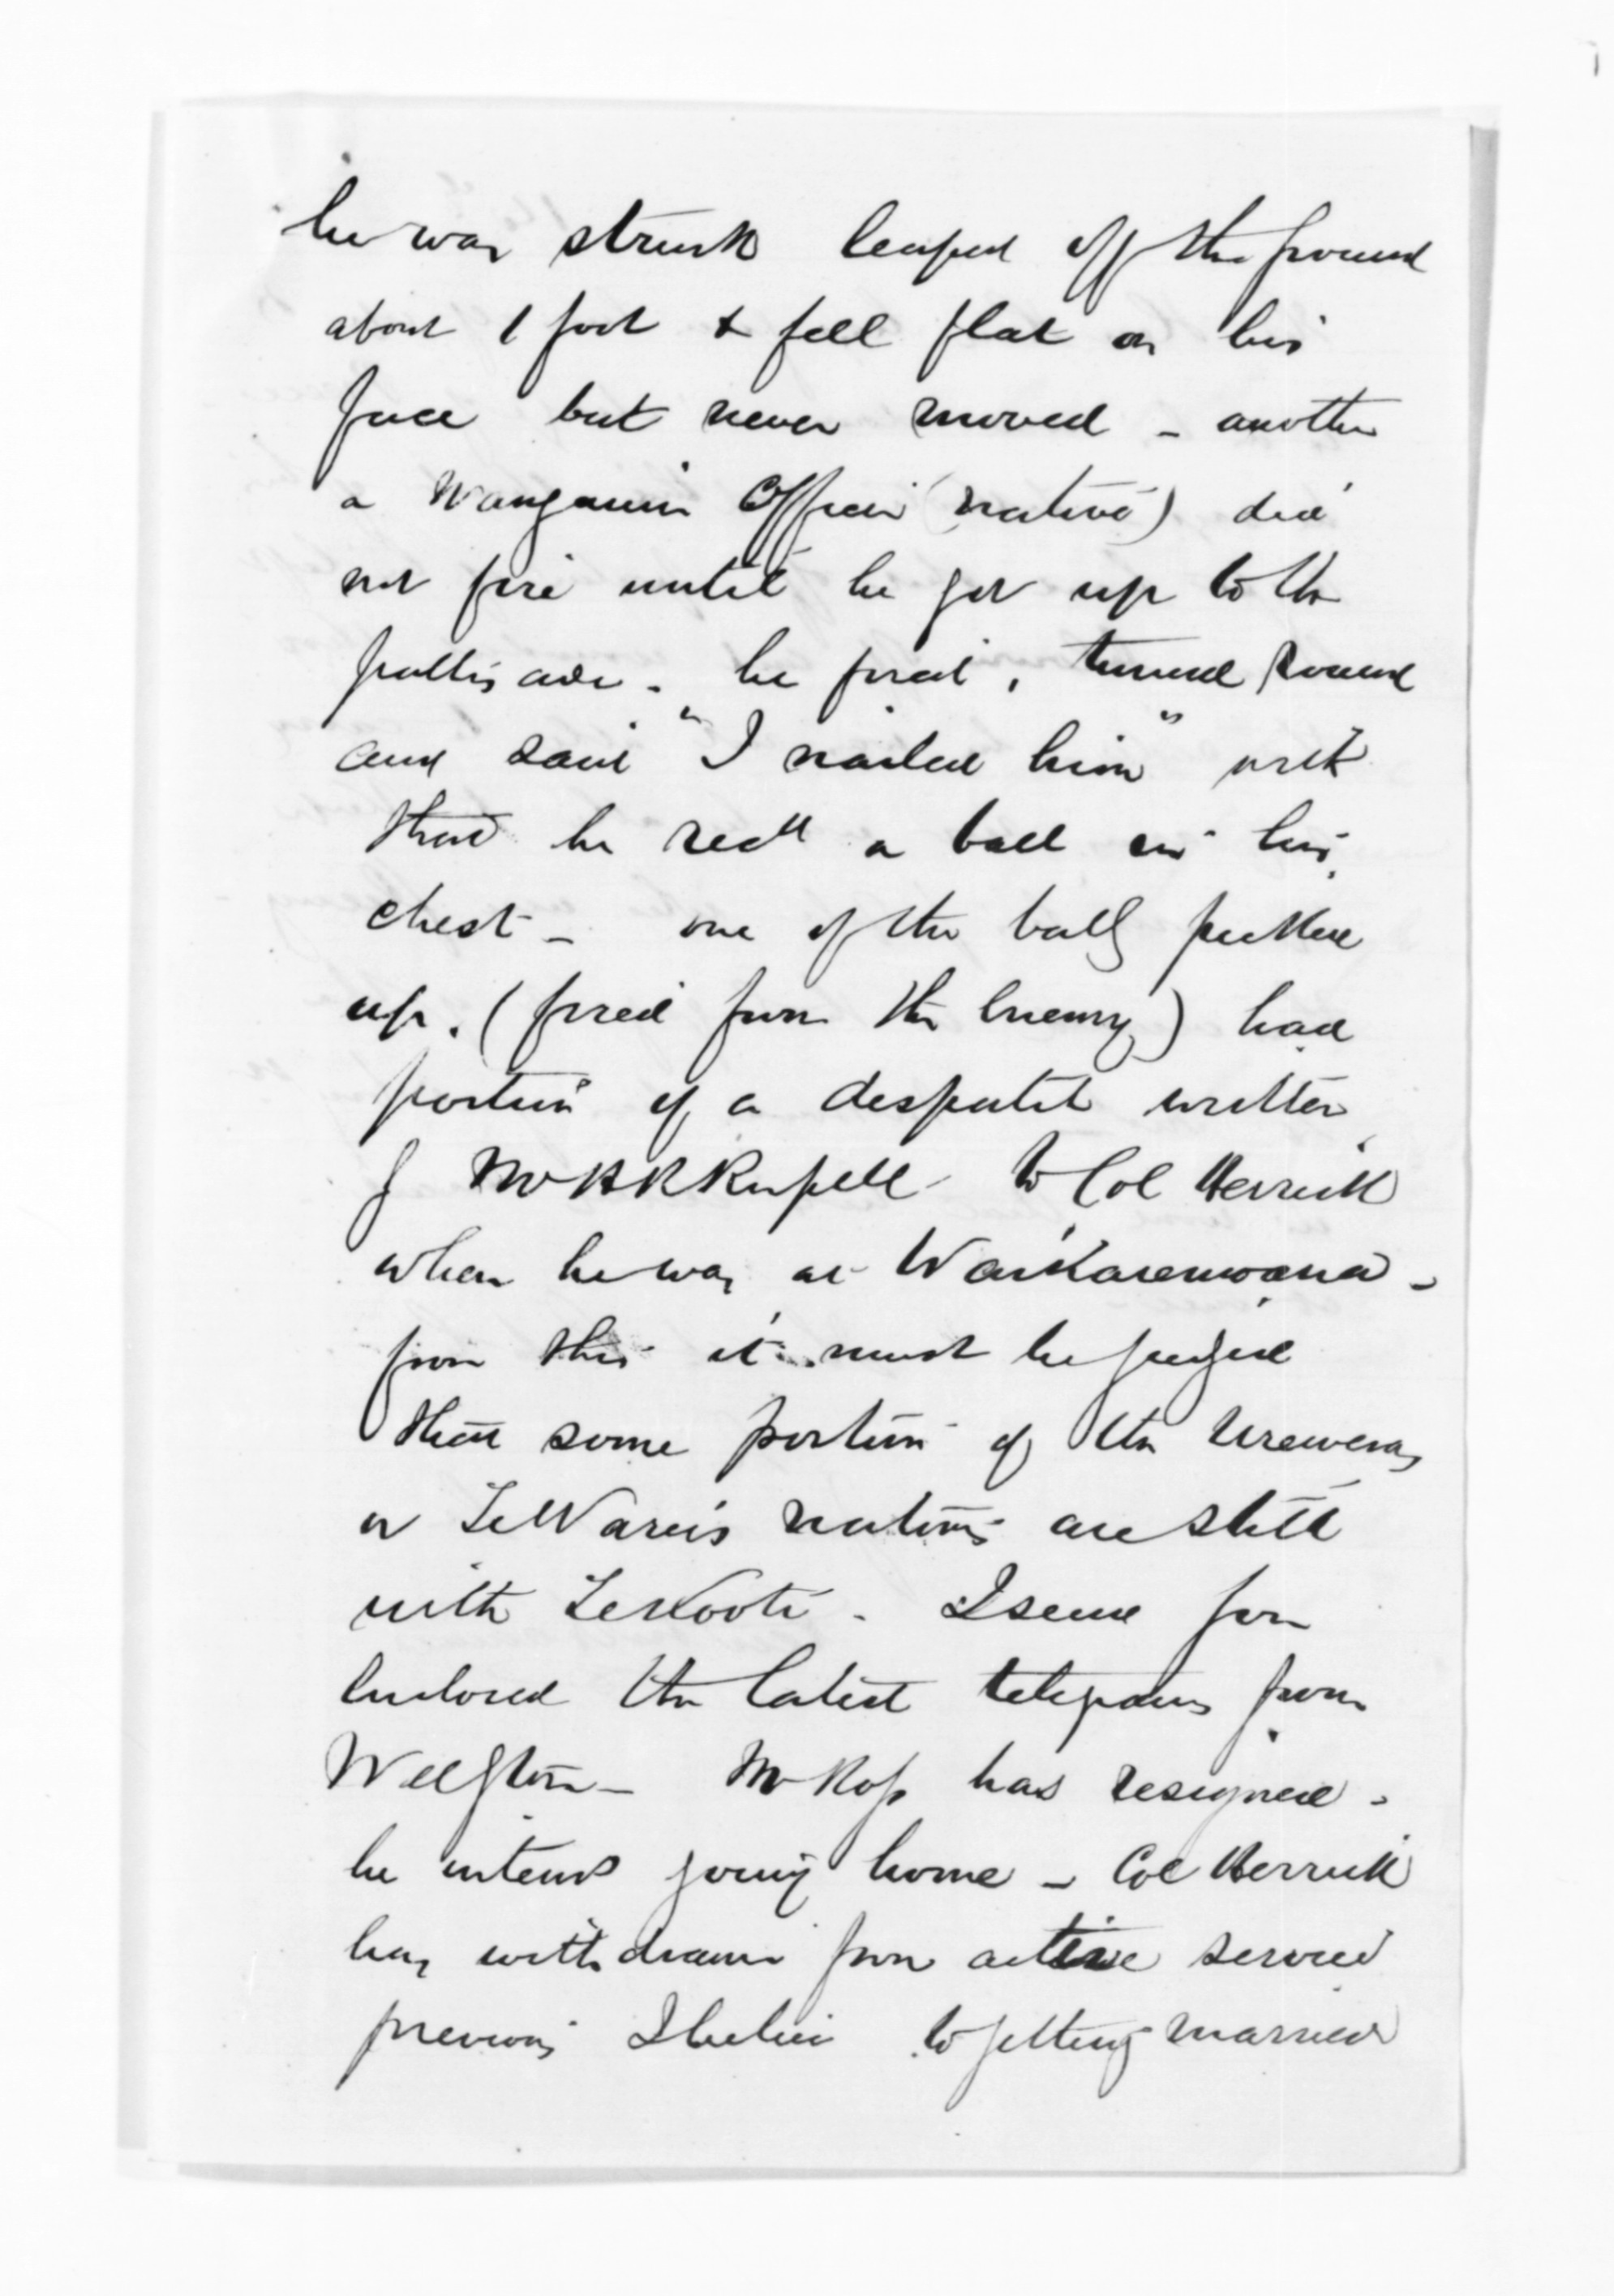 he was struck leaped off the ground
about 1 foot & fell flat on his
face but never moved - another
a Wanganui Officer (native) did
not fire until he got up to the
pallisade - he fired, turned round
and said "I nailed him" with
that he recd a ball in his
chest - one of the balls picked
up. (fired from the Enemy) had
portion of a despatch written
by Mr H R Russell to Col Herrick
when he was at Waikaremoana -
from this it must be judged
that some portion of the Ureweras
or Te Waru's natives are still
with Te Kooti - I send you
Enclosed the latest telegrams from
Wellgton - Mr Ross has resigned -
he intends going home - Col Herrick
has withdrawn from active service
previous I believe to getting married